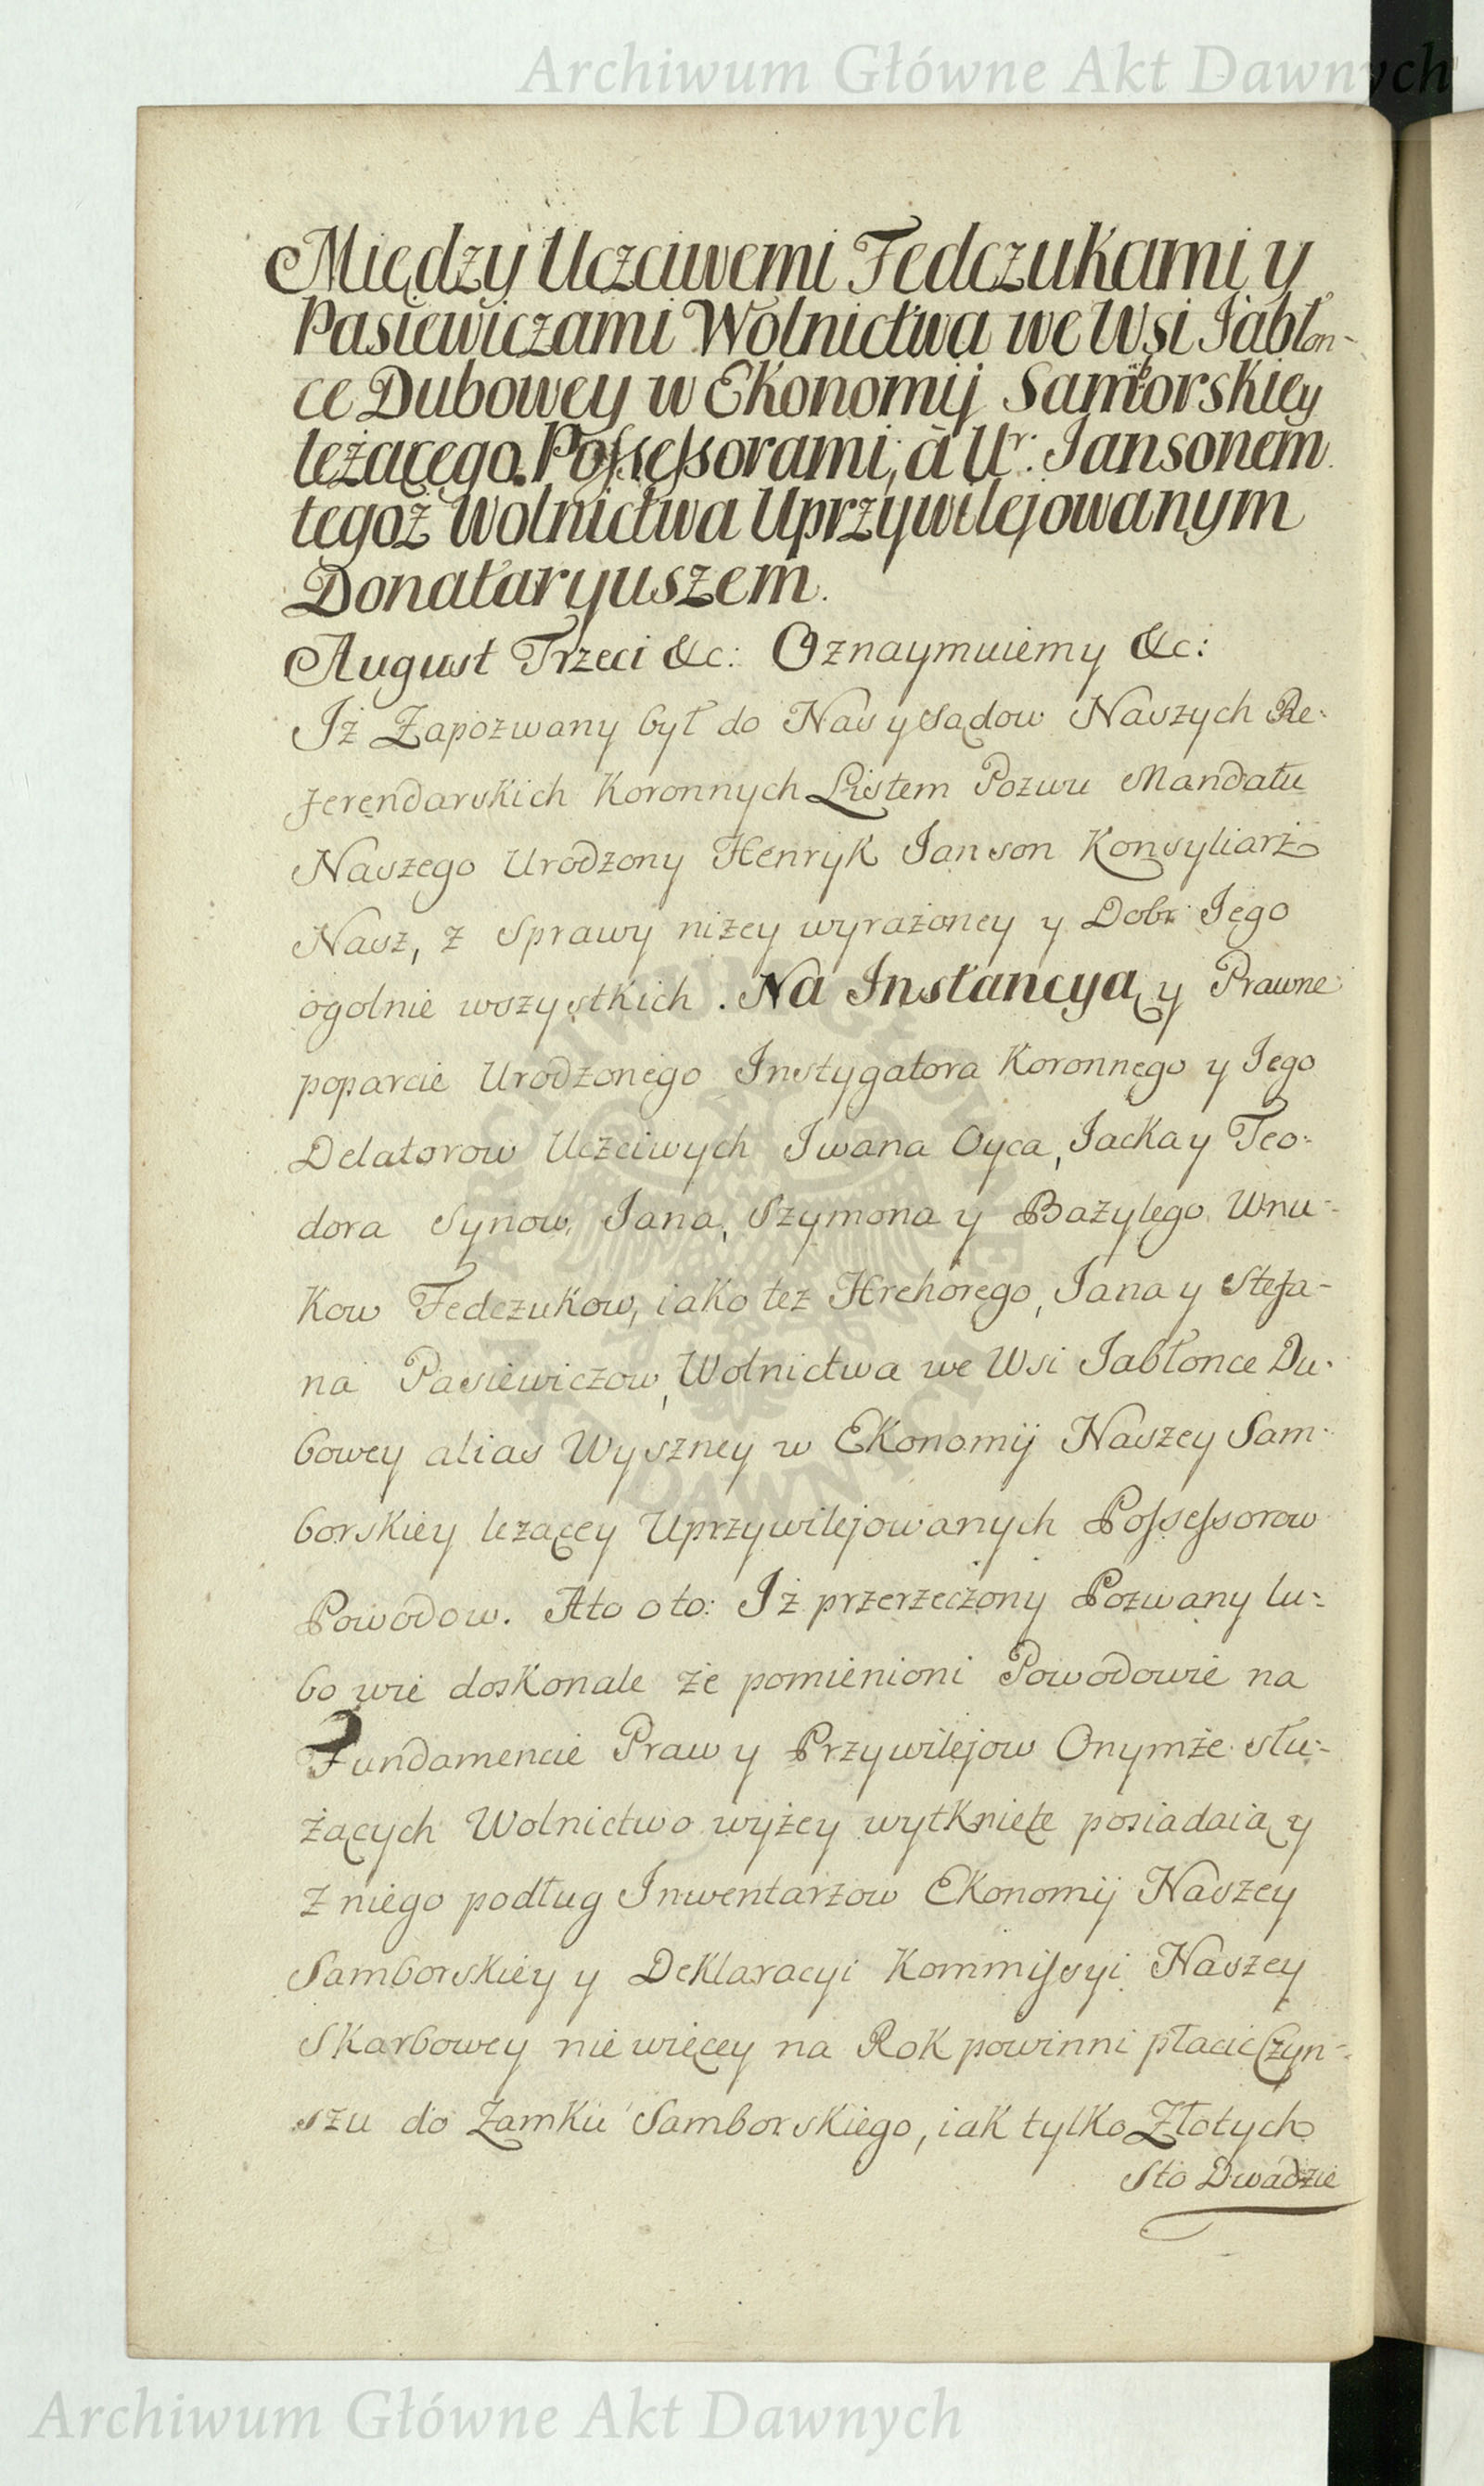 Archiwum Główne Akt Dawnych
Między Uczciwemi Fedczukami y
Pasiewiczami Wolnictwa we Wsi Jabłon-
ce Dubowey w Ekonomij Samborskiey
leżącego. Possessorami, à Ur: Jansonem
tegoż Wolnictwa Uprzywilejowanym
Donataryuszem.
August Trzeci &c: Oznaymuiemy &c:
Iż Zapozwany był do Nas y Sądow Naszych Re-
ferendarskich Koronnych Listem Pozwu Mandatu
Naszego Urodzony Henryk Janson Konsyliarz
Nasz, z Sprawy niżey wyrażoney y Dobr Jego
ogolnie wszystkich. Na Instancyą y Prawne
poparcie Urodzonego Instygatora Koronnego y Jego
Delatorow Uczciwych Iwana Oyca, Jacka y Teo-
dora Synow, Jana, Szymona y Bazylego Wnu-
kow Fedczukow, iako tez Hrehorego, Jana y Stefa-
na Pasiewiczow, Wolnictwa we Wsi Jabłonce Du-
bowey alias Wyszney w Ekonomij Naszey Sam-
borskiey leżącey Uprzywilejowanych Possessorow
Powodow. Ato oto: Iż przerzeczony Pozwany lu-
bo wie doskonale że pomienioni Powodowie na
Fundamencie Praw y Przywilejow Onymże słu-
żących Wolnictwo wyżey wytknięte posiadaią y
z niego podług Inwentarzow Ekonomij Naszey
Samborskiey y Deklaracyi Kommissyi Naszey
Skarbowey nie więcey na Rok powinni płacić Czyn-
szu do Zamku Samborskiego, iak tylko Złotych
Sto Dwadzie
ARCHIWUM GŁÓWNE
AKT DAWNYCH
Archiwum Główne Akt Dawnych